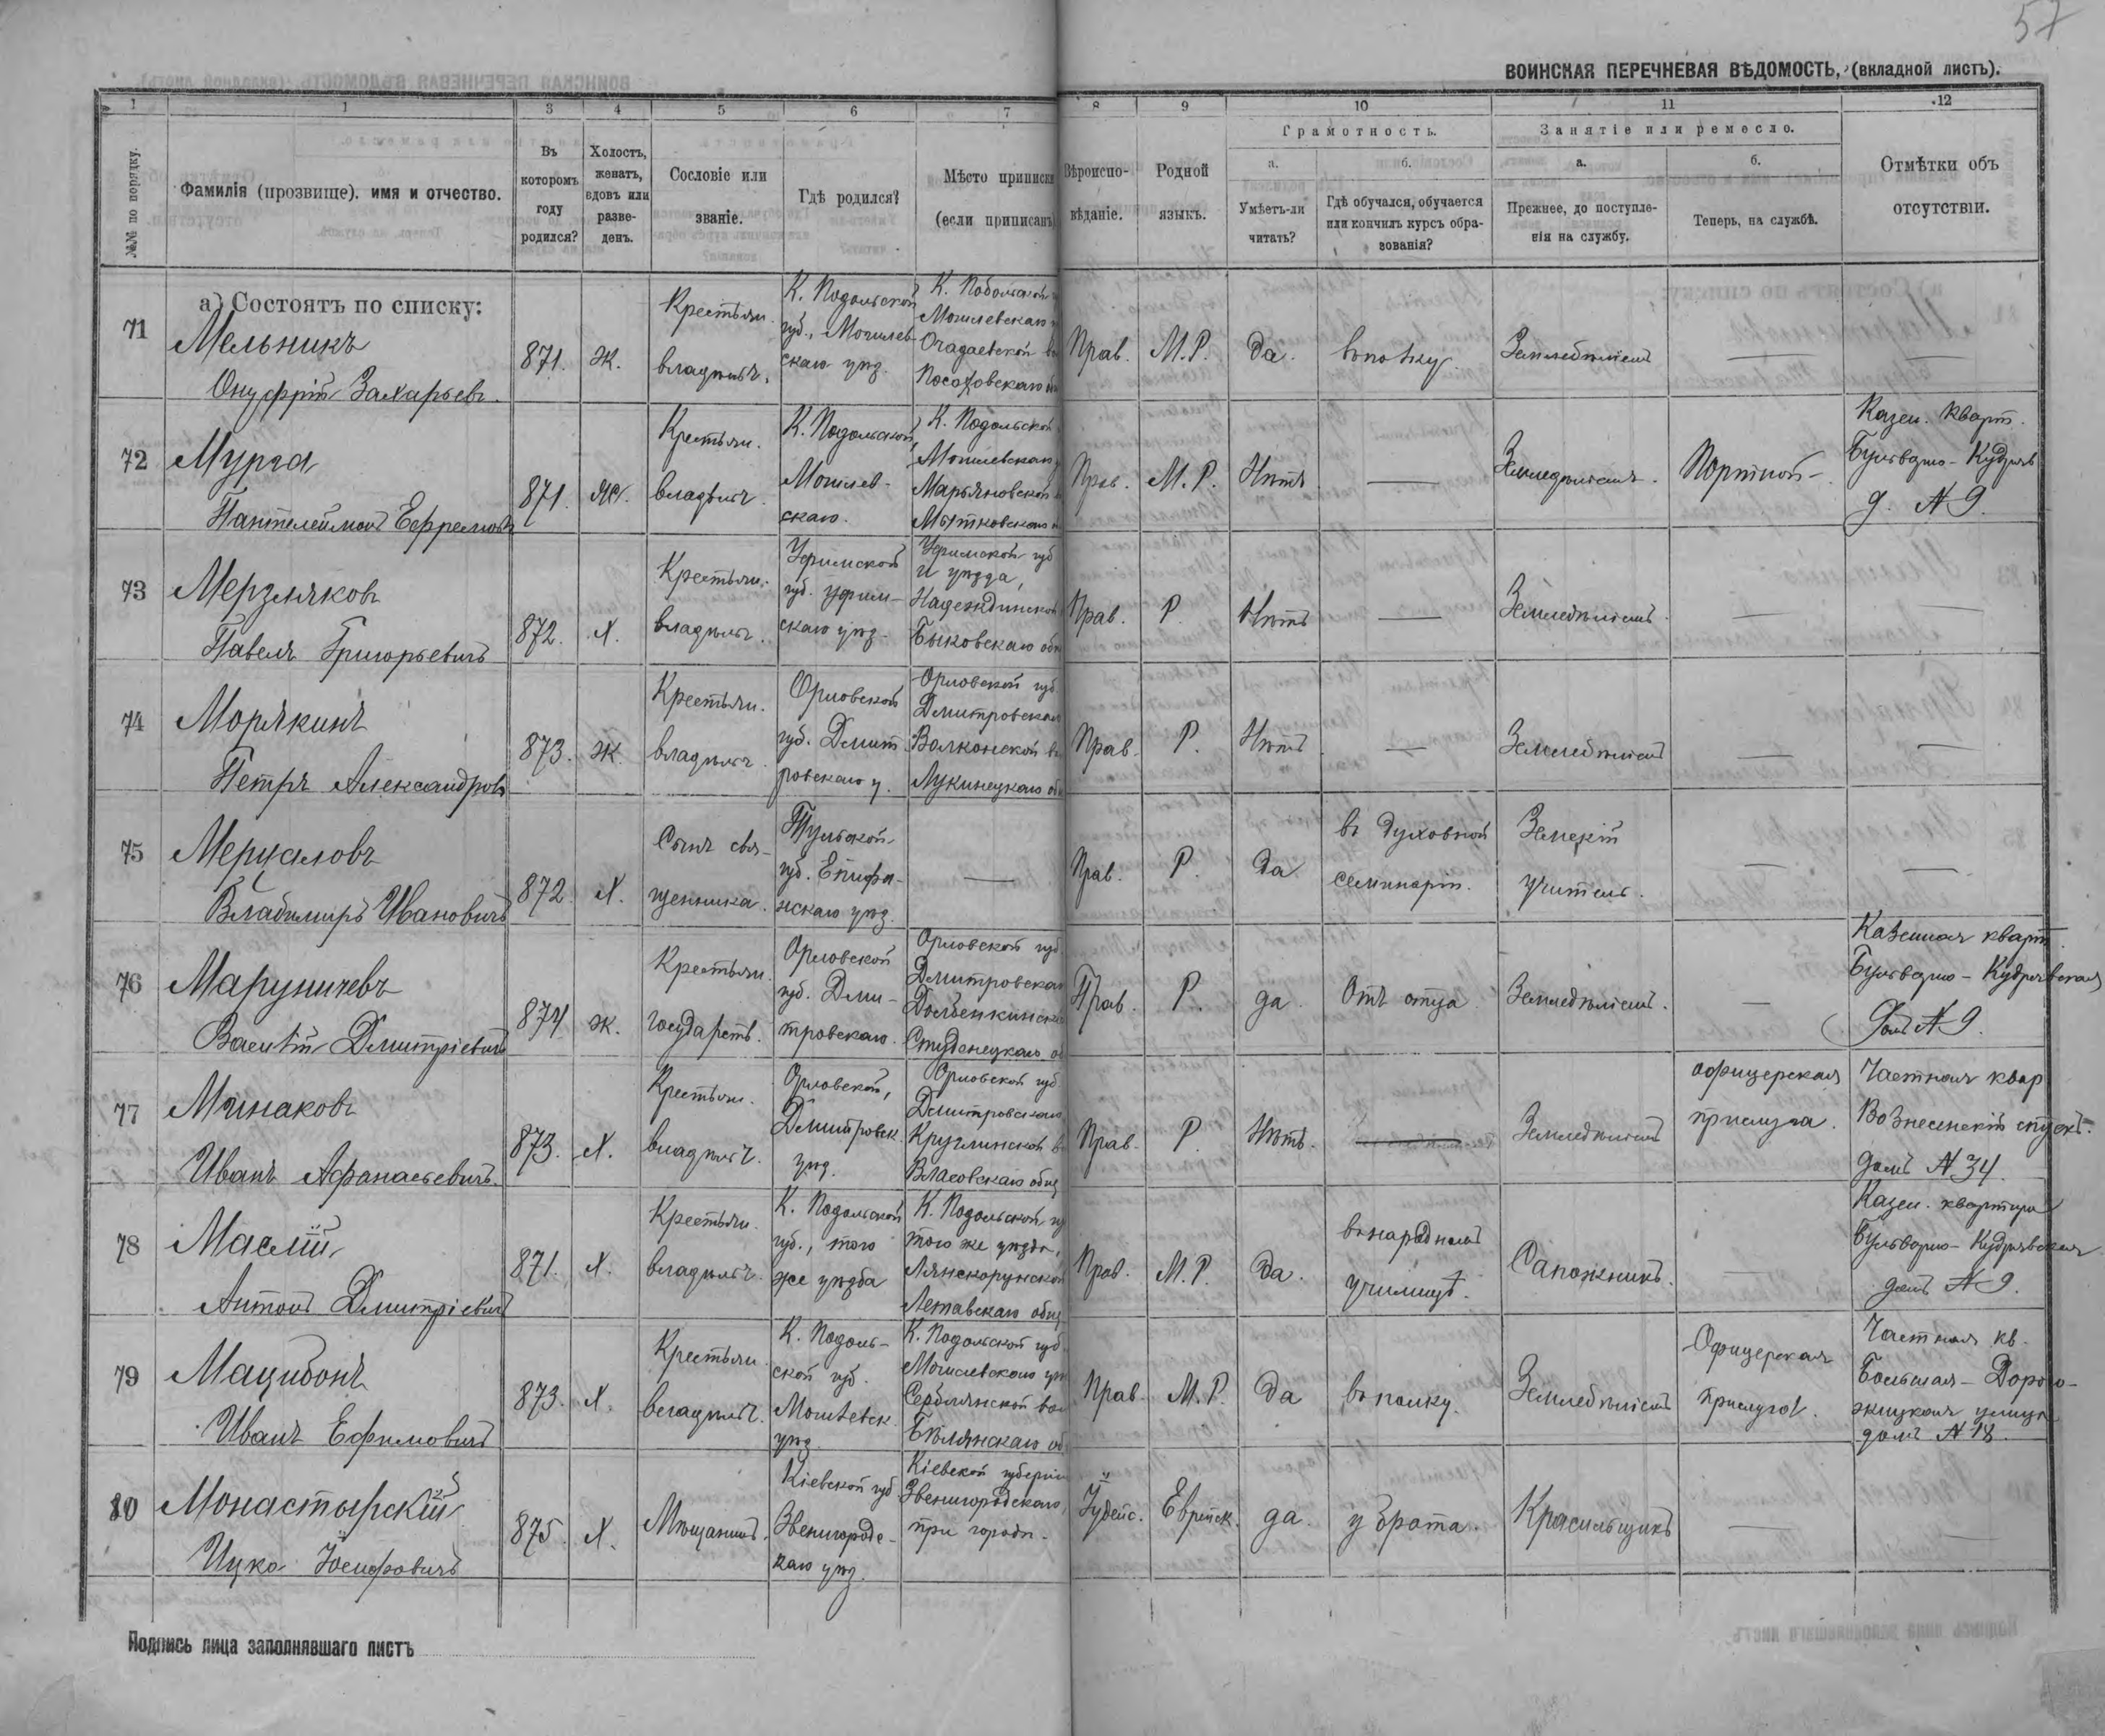 57
ВОИНСКАЯ ПЕРЕЧНЕВАЯ ВѢДОМОСТЬ, (вкладной листъ).
1 1 3 4 5 6 7 8 9 10 11 12
№№ по порядку.
Фамилія (прозвище). имя и отчество.
Въ
которомъ
году
родился?
Холостъ,
женатъ,
вдовъ или
разве-
денъ.
Сословіе или
званіе.
Гдѣ родился?
Мѣсто приписки
(если приписанъ
Вѣроиспо-
вѣданіе.
Родной
языкъ.
Грамотность.
а.
Умѣетъ-ли
читать?
б.
Гдѣ обучался, обучается
или кончилъ курсъ обра-
зованія?
Занятіе или ремесло.
а.
Прежнее, до поступле-
нія на службу.
б.
Теперь, на службѣ.
Отмѣтки объ
отсутствіи.
а) Состоятъ по списку:
71
Мельникъ
Онуфрій Захарьев.
871.
Ж.
Крестьян.
владѣлъч.
К. Подольской
губ., Могилев-
скаго уѣз.
К. Подольской
Могилевскаго
Посоховскаго
Прав.
М.Р.
Да.
въ полку.
Земледѣліемъ
—
—
72
Мурга
Пантелеймонъ Ефремовъ
871.
Крестьян.
владѣлъч.
К. Подольской,
Могилев-
скаго.
К. Подольской
Могилевскаго
Марьяновской
Мытковскаго
Прав.
М.Р.
Нѣтъ
—
Земледѣліемъ.
Портной
Казен. кварт.
Бульварно-Кудряв
д. № 9.
73
Мерзляковъ
Павелъ Григорьевичъ
872.
Х.
Крестьян.
владѣлъч.
Уфимской
губ. уфим-
скаго уѣз.
Уфимской губ
и уѣзда,
Надеждинской
Быковскаго общ
Прав.
Р.
Нѣтъ
—
Земледѣліемъ.
—
—
74
Морякинъ
Петръ Александровъ
873.
Ж.
Крестьян.
владѣлъч.
Орловской
губ. Дмит
ровскаго у.
Орловской губ
Дмитровскаго
Волконской в
Лукинецкаго об
Прав.
Р.
Нѣтъ
—
Земледѣліемъ
—
—
75
Мерцаловъ
Владимиръ Ивановичъ
872.
Х.
Сынъ свя-
щенника.
Тульской
губ. Епифа-
нскаго уѣз.
—
Прав.
Р.
Да
въ духовной
семинаріи.
Земскій
учитель.
—
—
76
Маруничевъ
Василій Дмитріевичъ
874
Ж.
Крестьян.
государств.
Орловской
губ. Дми-
тровскаго.
Орловской губ
Дмитровскаго
Долбенкинской
Студенецкаго о
Прав.
Р.
да.
Отъ отца
Земледѣліемъ.
—
Казенная кварт.
Бульварно-Кудрявская
Домъ № 9.
77
Минаковъ
Иванъ Афанасьевичъ.
873.
Х.
Крестьян.
владѣлъч.
Орловской,
Дмитровск.
уѣз.
Орловской губ
Дмитровскаго
Круглинской в
Власовскаго общ
Прав.
Р.
Нѣтъ.
—
Земледѣліемъ
офицерская
прислуга.
Частная квар
Вознесенскій спускъ.
домъ № 34.
78
Маслій
Антонъ Дмитріевичъ
871.
Х.
Крестьян.
владѣлъч.
К. Подольской
губ., того
же уѣзда
К. Подольской гу
того же уѣзда,
Лянскорунской
Летавскаго общ
Прав.
М.Р.
Да.
въ народномъ
училищѣ.
Сапожникъ.
—
Казен. квартира
Бульварно-Кудрявская
домъ № 9.
79
Мацибонъ
Иванъ Ефимовичъ
873.
Х.
Крестьян.
владѣлъч.
К. Подоль-
ской губ.
Могилевск.
уѣз.
К. Подольской губ.
Могилевскаго уѣз
Серблянской вол
Бѣлянскаго об
Прав.
М.Р.
Да
въ полку.
Земледѣліемъ
Офицерская
прислуга.
Частная кв.
Большая-Дорого-
жицкая улица
домъ № 18.
80
Монастырскій
Ицко Іосифовичъ
875.
Х.
Мѣщанинъ.
Кіевской губ
Звенигородс-
каго уѣз.
Кіевской губерніи
Звенигородскаго,
при городѣ.
Іудейс.
Еврейск.
да.
у брата.
Красильщикъ
—
—
Подпись лица заполнявшаго листъ